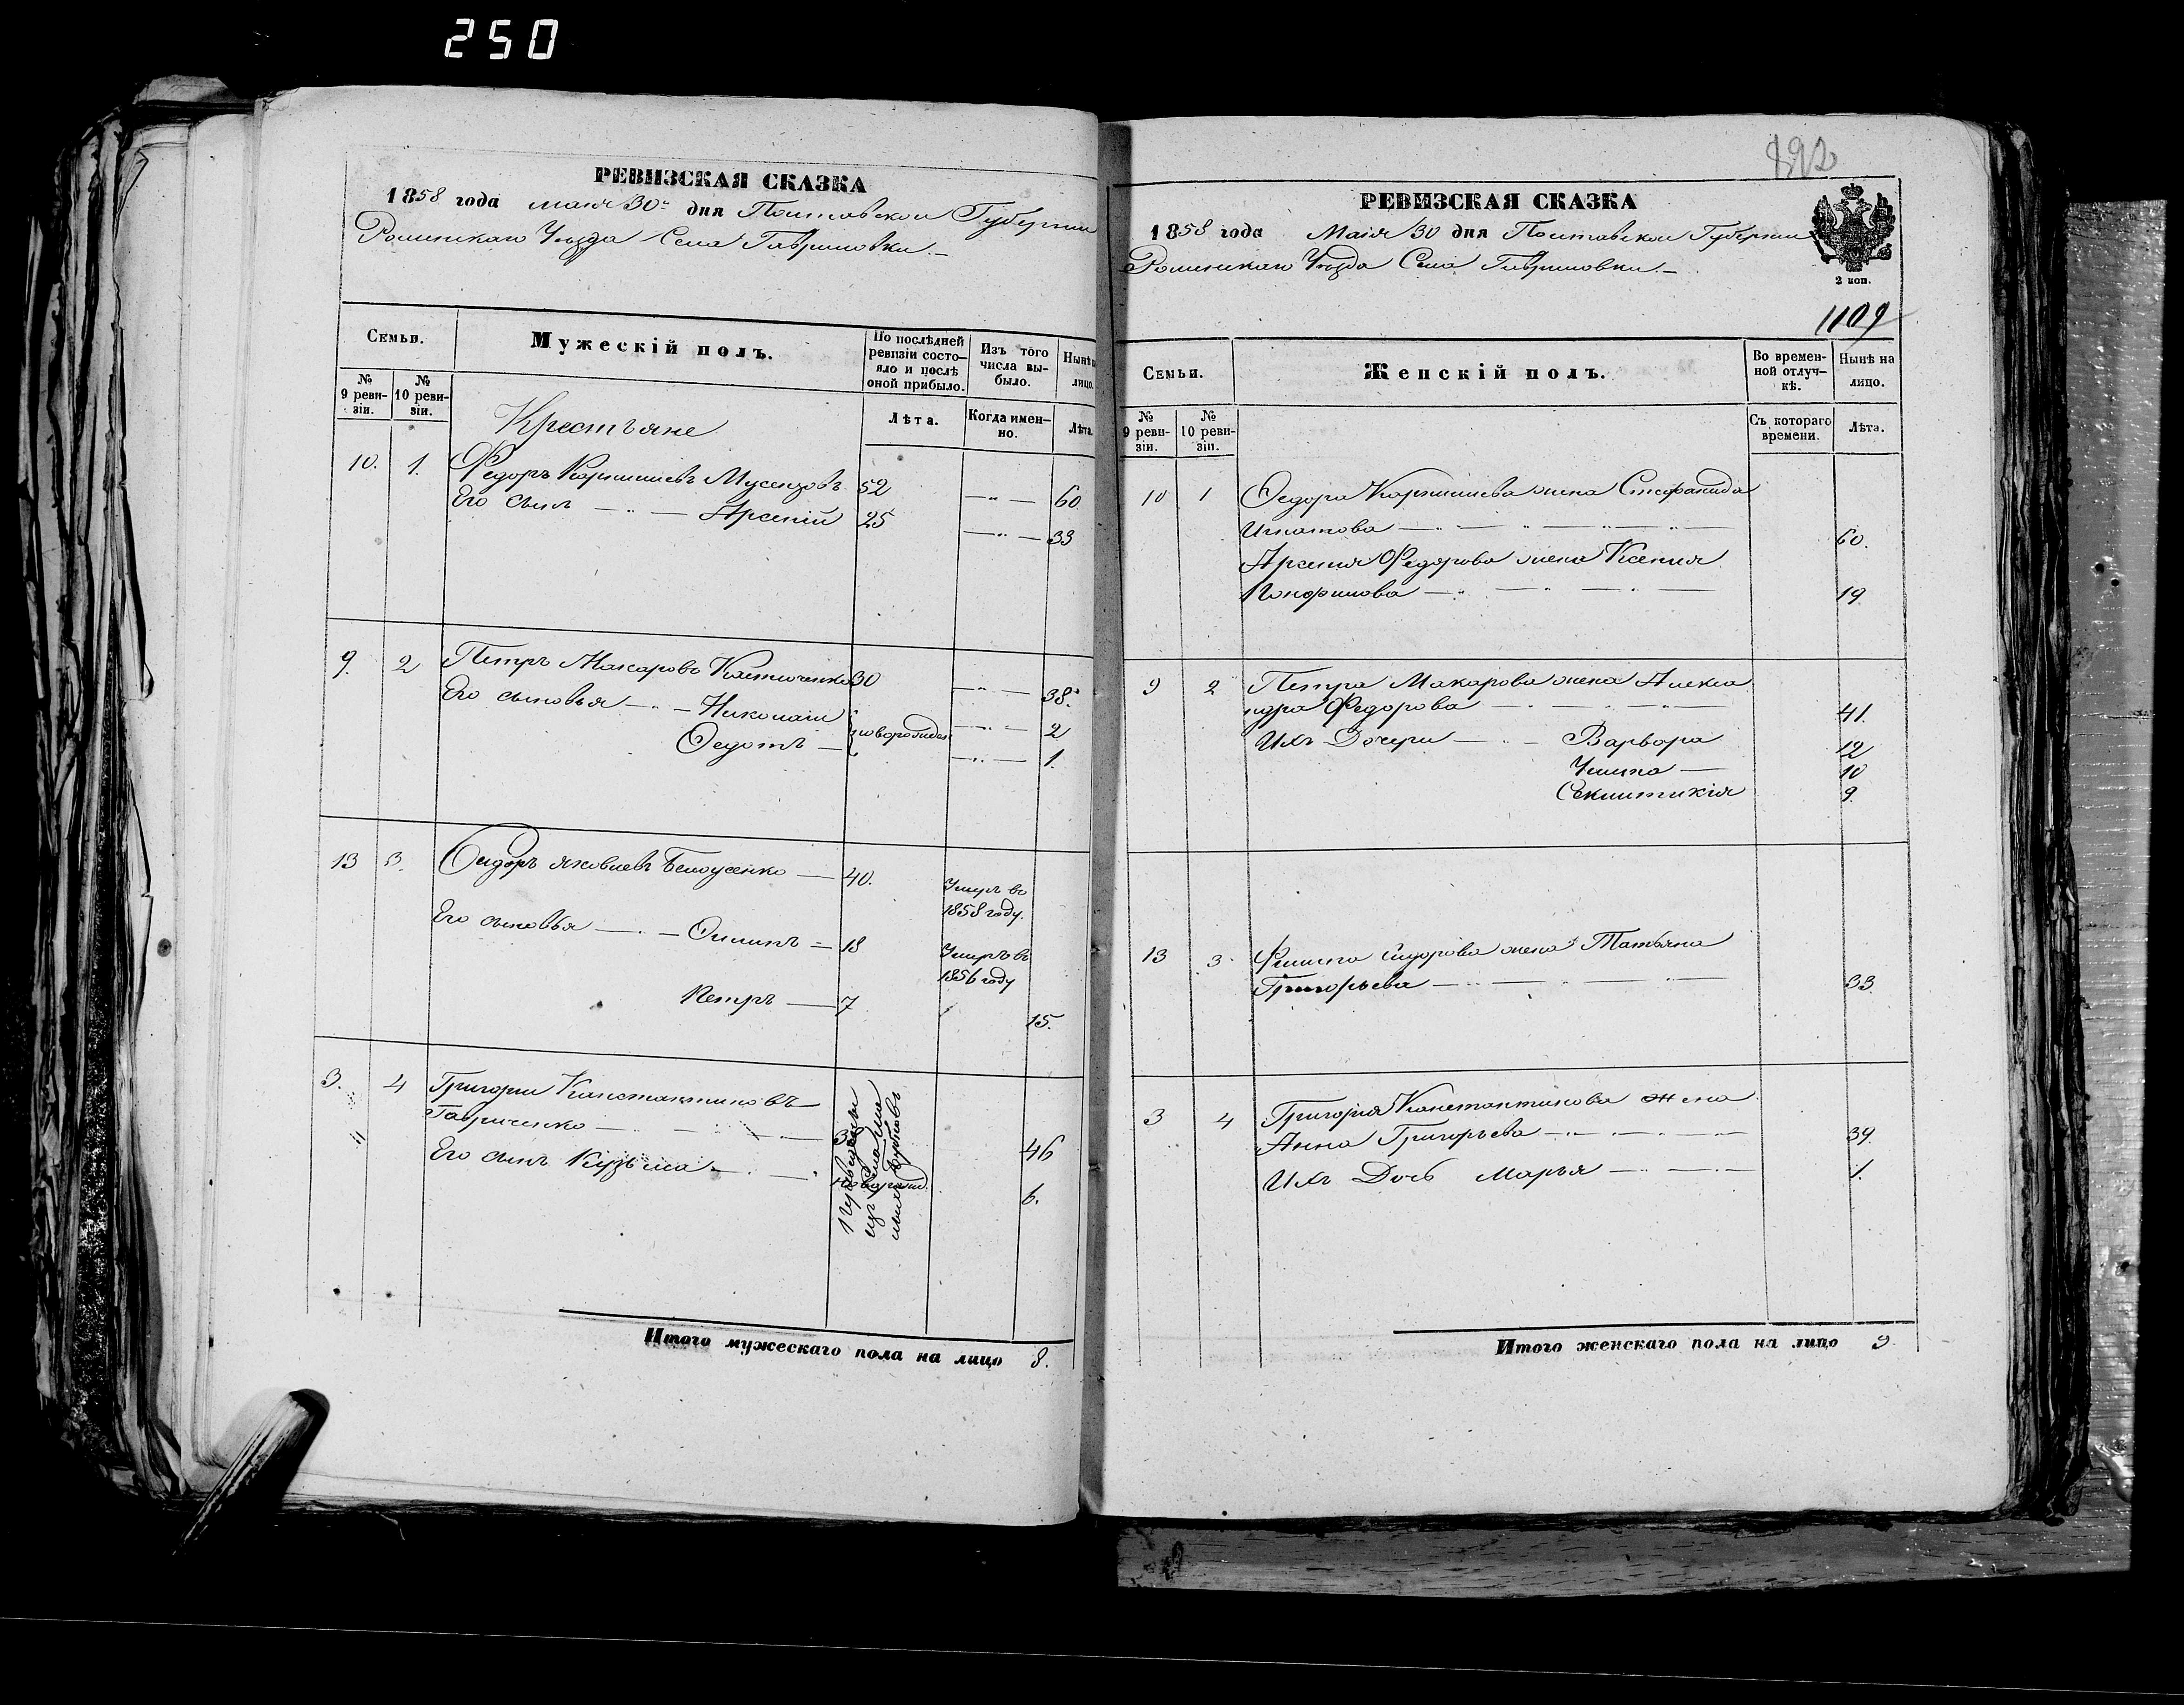 250
РЕВИЗСКАЯ СКАЗКА
1858 года мая 30 дня Полтавской Губернии
Роменскаго Уезда Села Гавриловки
Семьи.
Мужескій полъ.
По послѣдней ревизіи состояло и послѣ оной прибыло.
Изъ того числа выбыло.
Нынѣ на лицо.
№ 9 ревизіи.
№ 10 ревизіи.
Лѣта.
Когда именно.
Лѣта.
Крестьяне
10. 1. Федоръ Карпиліевъ 52 60
Его сынъ Арсеній 25 33
9. 2 Петръ Макаровъ Костюченко 30 38.
Его сыновья Николай новорожден 2
Федотъ 1.
13 3. Сидоръ Яковлевъ Белоусенко 40. Умеръ въ 1858 году.
Его сыновья 18 Умеръ въ 1856 году
Петръ 7 15.
3. 4 Григорий Константиновъ
Гавриленко 46
Его сынъ Кузьма новорожд. 6.
Итого мужескаго пола на лицо 8.
892
РЕВИЗСКАЯ СКАЗКА
1858 года Маія 30 дня Полтавской Губернии
Роменскаго Уезда Села Гавриловки
2 коп.
1109
Семьи.
Женскій полъ.
Во временной отлучкѣ.
Нынѣ на лицо.
№ 9 ревизіи.
№ 10 ревизіи.
Съ котораго времени.
Лѣта.
10 1 Федора Карпилиева жена Стефанида
Игнатова 60.
Арсения Федорова жена Ксения
19.
9 2 Петра Макарова жена Алекса
ндра Федорова 41.
Ихъ Дочери Варвара 12
Улита 10
9.
13 3 Филипа Сидорова жена Татьяна
Григорьева 33.
3 4 Григория Константинова жена
Анна Григорьева 39.
Ихъ Дочь Марья 1.
Итого женскаго пола на лицо 9